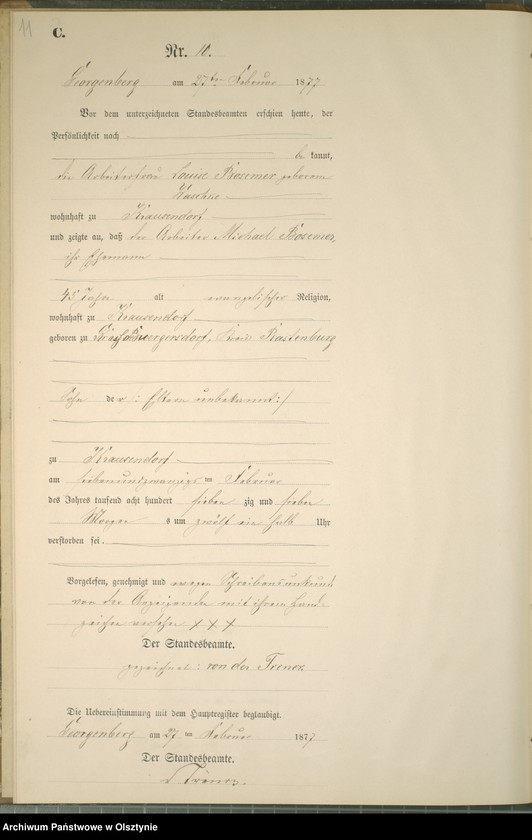 11
C.
Nr. 10.
Georgenberg am 27ten Februar 1877
Vor dem unterzeichneten Standesbeamten erschien heute, der
Persönlichkeit nach
be kannt,
die Arbeiterfrau Louise Rosemer geborene
wohnhaft zu Krausendorf
und zeigte an, daß der Arbeiter Michael Rosemer,
ihr Ehemann
45 Jahr alt evangelischer Religion,
wohnhaft zu Krausendorf
geboren zu Kreis Rastenburg
Sohn der : Eltern unbekannt :/
zu Krausendorf
am siebenundzwanzigsten Februar
des Jahres tausend acht hundert sieben zig und sieben
Morgens um zwölf ein halb Uhr
verstorben sei.
Vorgelesen, genehmigt und wegen Schreibensunkunde
von der Anzeigenden mit ihrem Hand-
zeichen versehen X X X
Der Standesbeamte.
gezeichnet: von der Trenck
Die Uebereinstimmung mit dem Hauptregister beglaubigt.
Georgenberg am 27 ten Februar 1877
Der Standesbeamte.
Archiwum Państwowe w Olsztynie